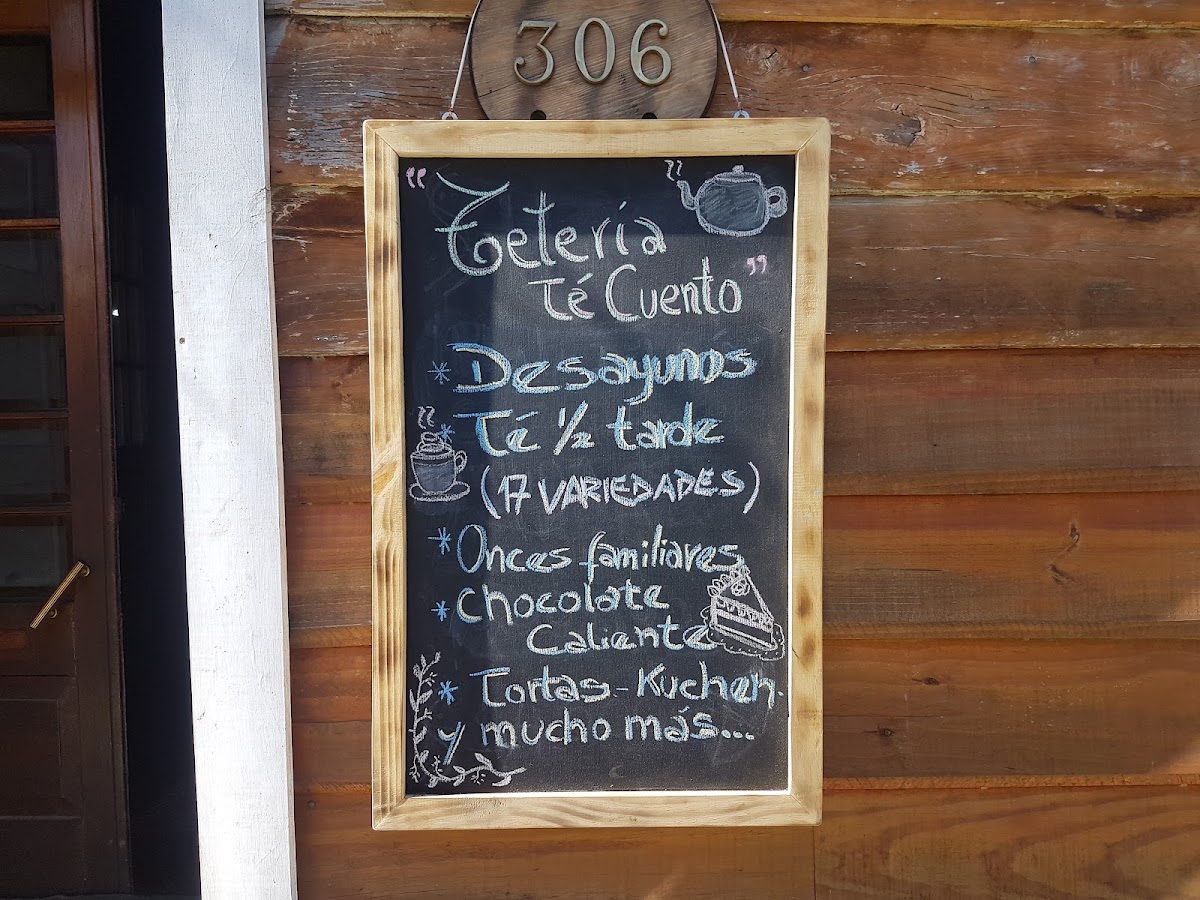 306
“Tetería
Té Cuento”
* Desayunos
* Té 1/2 tarde
(17 VARIEDADES)
* Onces familiares
* Chocolate
Caliente
* Tortas - Kuchen.
y mucho más...